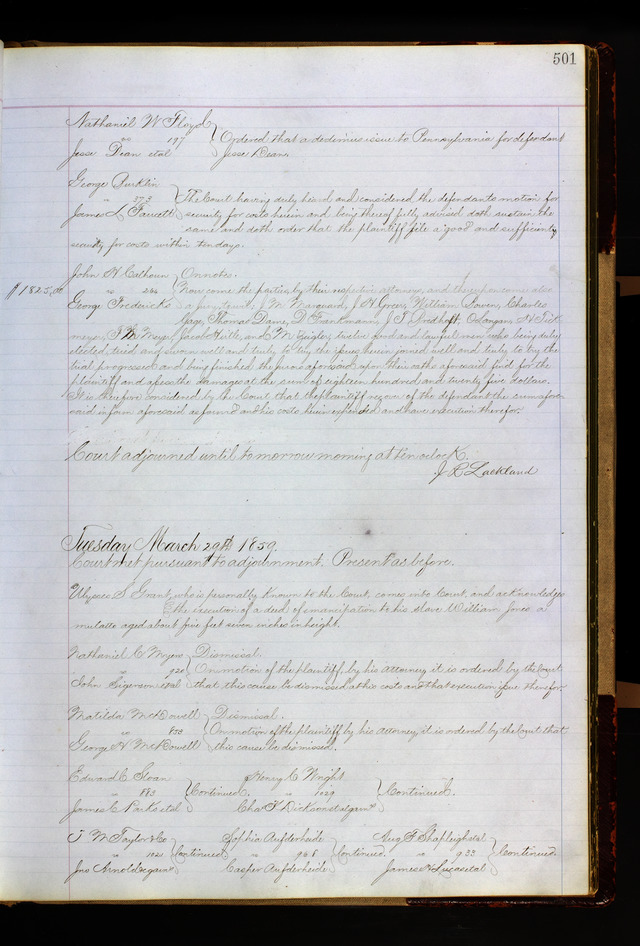 501
Nathaniel W Floyd
vs 197 Ordered that a dedimus issue to Pennsylvania for defendant
Jesse Dean etal Jesse Dean.
George Burklin
vs 273 The Court having duly heard and considered the defendants motion for
James L Faucett security for costs herein and being thereof fully advised doth sustain the
same and doth order that the plaintiff file a good and sufficient
security for costs within ten days.
John H Calhoun On note.
$1825,00 vs 244 Now come the parties by their respective attorneys, and thereupon came also
George Fredericks a jury, to wit, J M Marquam, J H Greer, William Bowen, Charles
Gaze, Thomas Dame, D Frankmann, J T Bredhoft, O Langan, H Till
meyer, J M Meyer, Jacob Hill, and M Geigler, twelve good and lawful men who being duly
elected, tried and sworn well and truly to try the issues herein joined well and truly to try the
trial progressed and being finished the jurors aforesaid upon their oaths aforesaid find for the
plaintiff and assess the damages at the sum of eighteen hundred and twenty five dollars.
It is therefore considered by the Court that the plaintiff recover of the defendant the sum afore
said in form aforesaid as found and his costs herein expended and have execution therefor.
Court adjourned until tomorrow morning at ten oclock.
J R Lackland
Tuesday March 29th 1859.
Court met pursuant to adjournment. Present as before.
Ulysses S Grant, who is personally known to the Court, comes into Court, and acknowledges
the execution of a deed of emancipation to his slave William Jones a
mulatto aged about five feet seven inches in height.
Nathaniel C Myers Dismissal.
vs 920 On motion of the plaintiff by his attorney it is ordered by the Court
John Sigerson etal that this cause be dismissed at his costs and that execution issue therefor.
Matilda McKowell Dismissal.
vs 853 On motion of the plaintiff by his attorney, it is ordered by the Court that
George H McKowell this cause be dismissed.
Edward C Sloan Henry C Wright
vs 893 Continued. vs 1029 Continued.
James C Parks etal Chas T Dickson etal garns
T M Taylor & Co Sophia Aufderheide Aug F Shapleigh etal
vs 1021 Continued vs 968 Continued. vs 933 Continued.
Jno Arnold garns Casper Aufderheide James H Lucas etal